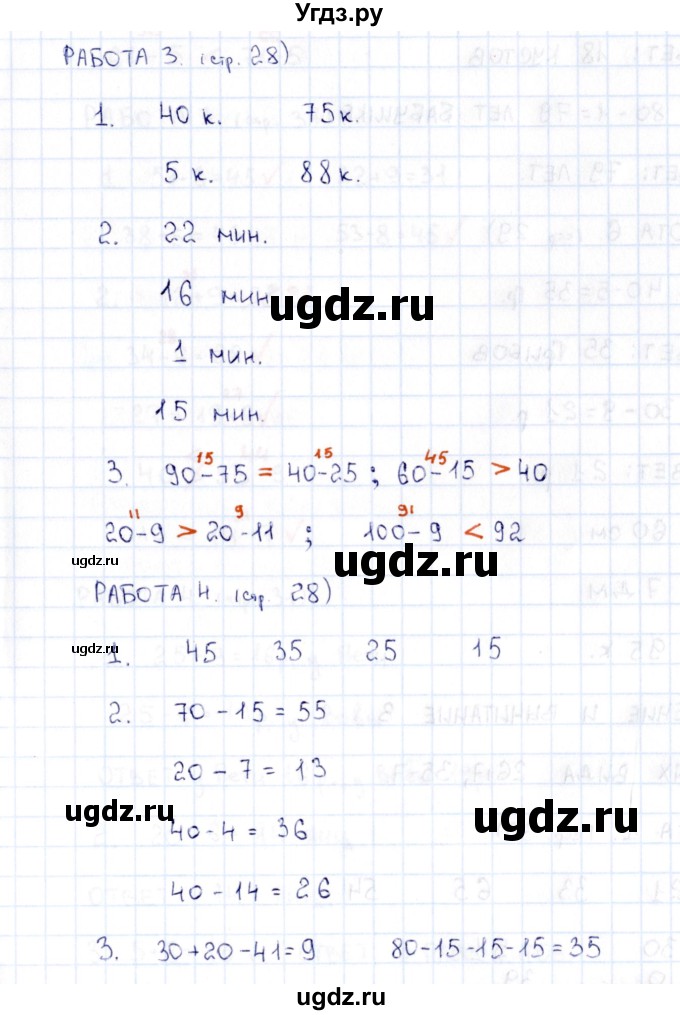 Угдз.ру
РАБОТА 3. (стр. 28)
1. 40 к. 75 к.
5 к. 88 к.
2. 22 мин.
16 мин
ugdz.ru
1 мин.
15 мин.
ugdz.ru
15 15 45
3. 90-75 = 40-25 ; 60-15 > 40
11 9 91
20-9 > 20-11 ; 100-9 < 92
ugdz.ru
ugdz.ru
РАБОТА 4. (стр. 28)
ugdz.ru
1. 45 35 25 15
2. 70-15=55
20-7=13
ugdz.ru
40-4=36
ugdz.ru
40-14=26
3. 30+20-41=9 80-15-15-15=35
ugdz.ru